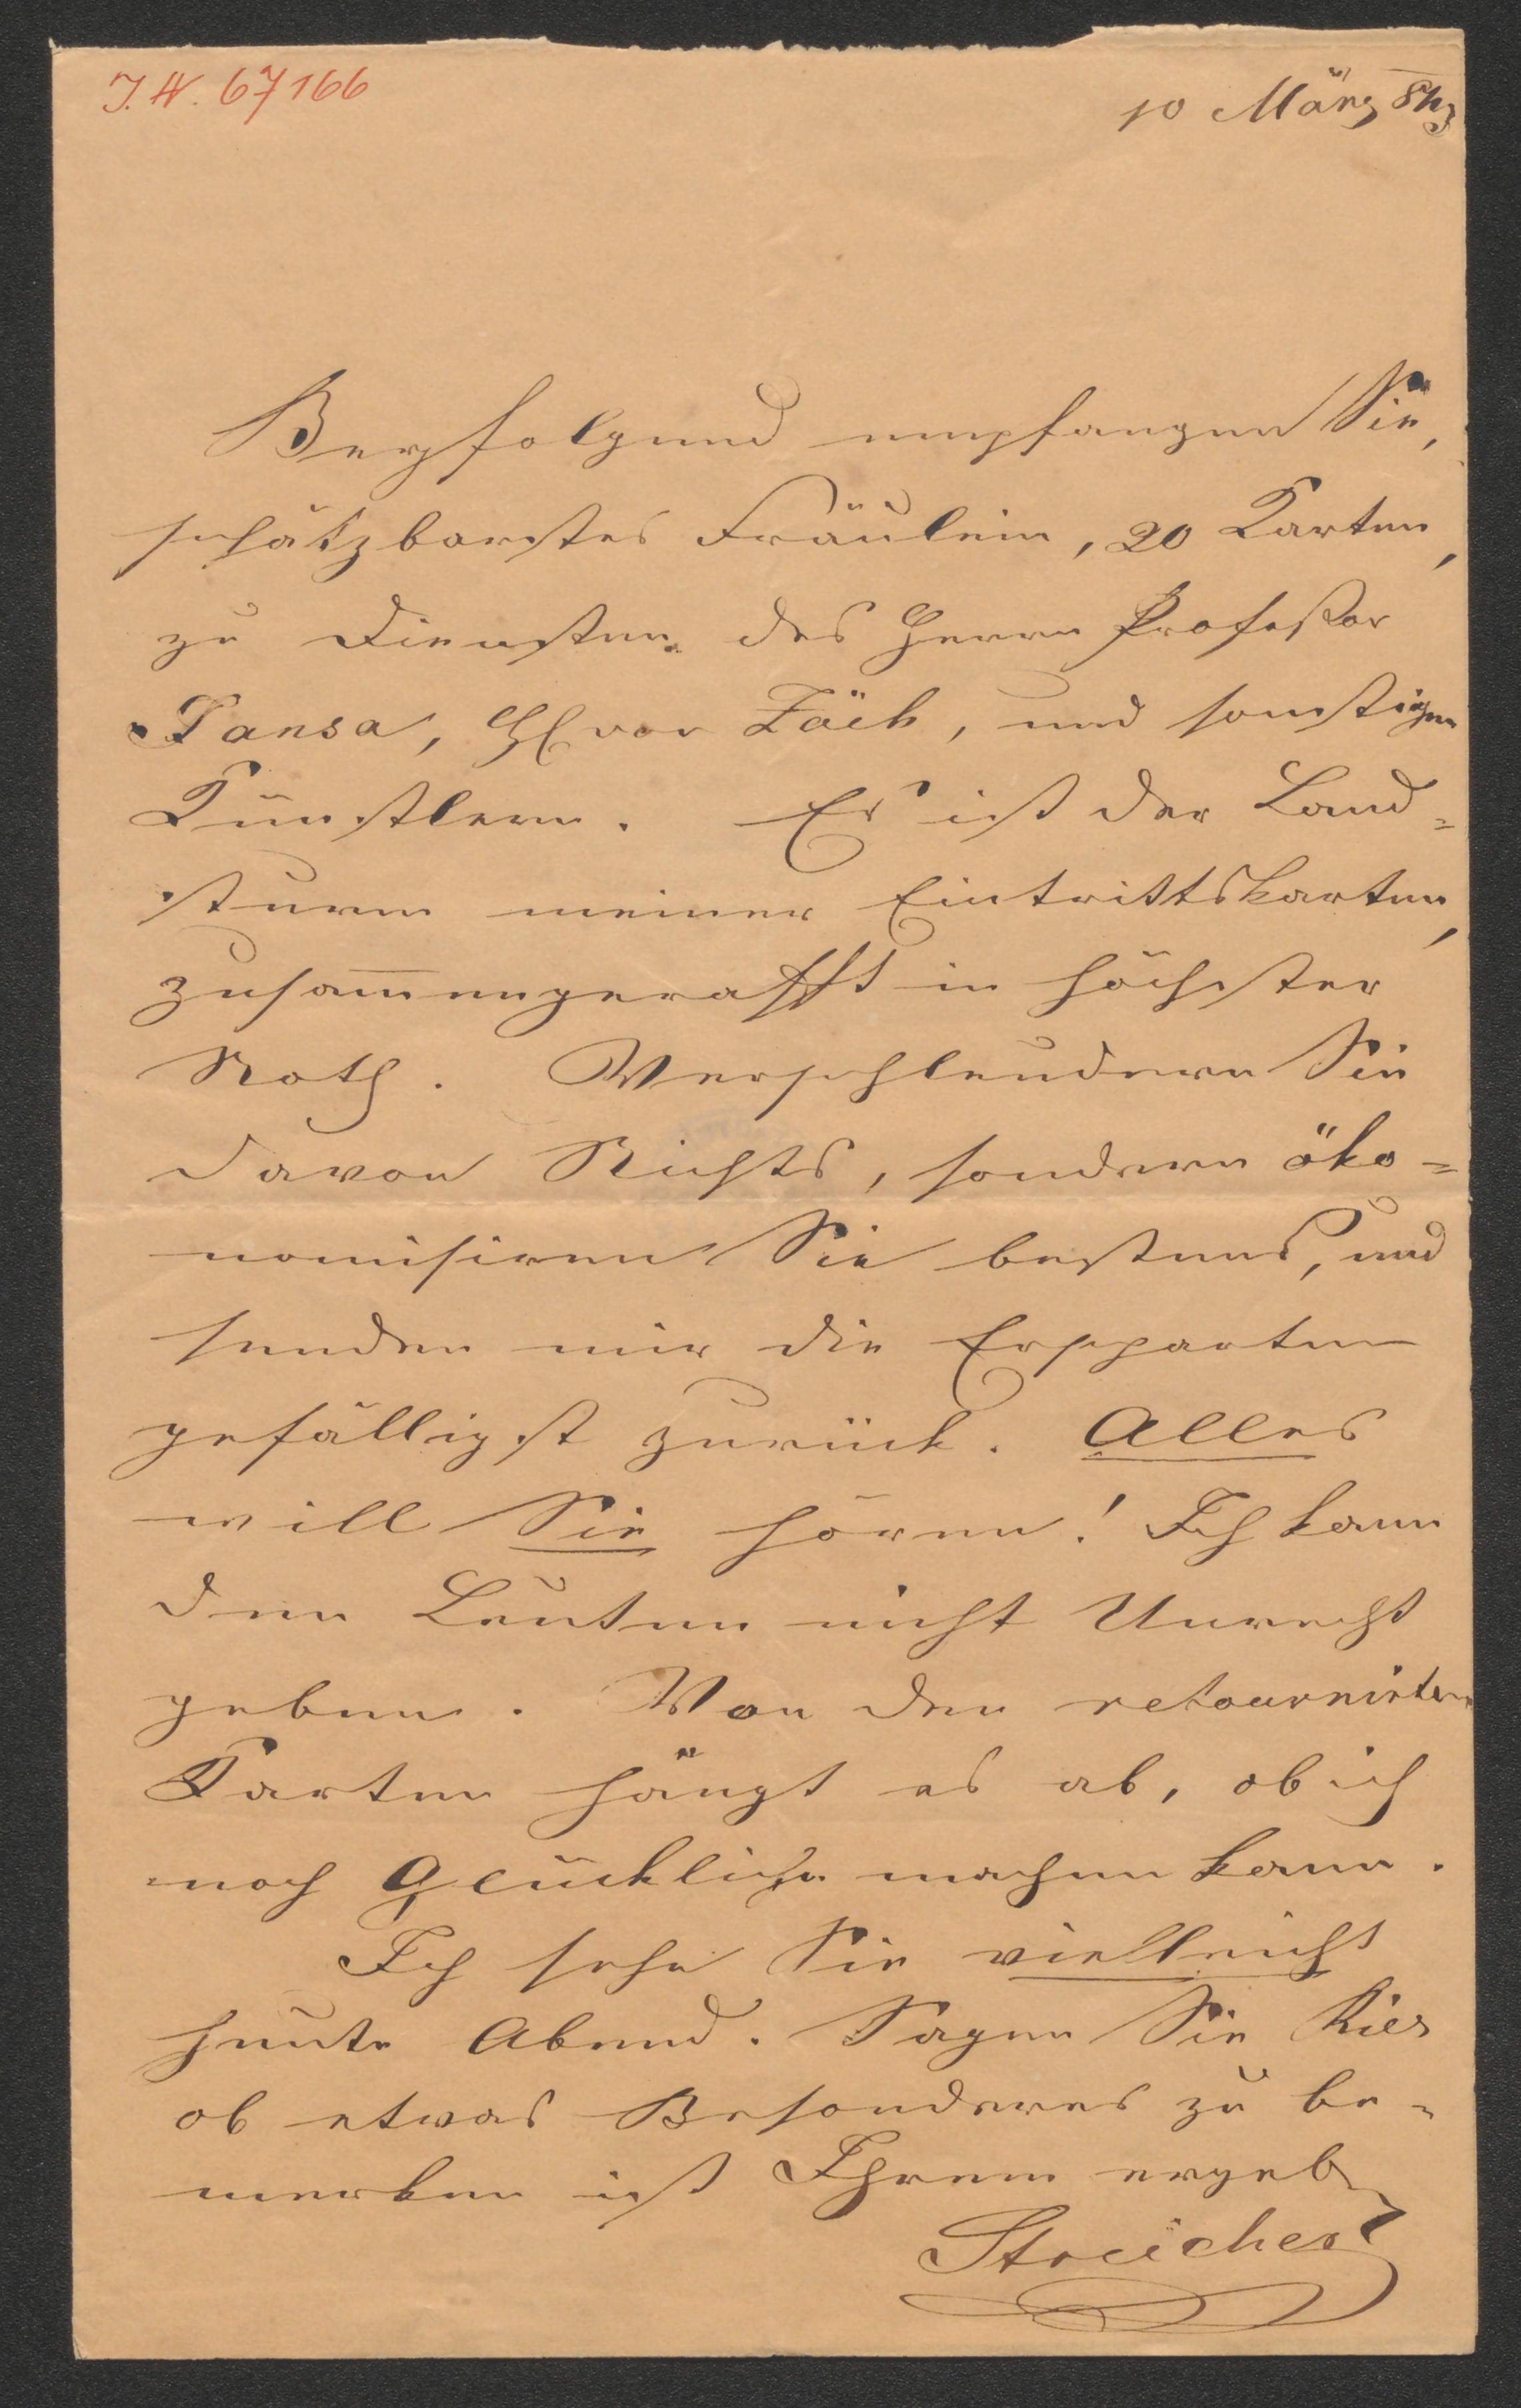 J.N. 67166
10 März
Beyfolgend empfangen Sie,
schätzbarstes Fräulein, 20 Karten,
zu Diensten des Herrn Professor
Jansa, Zäch, und sonstigen
Künstlern. Es ist der Land=
sturm meiner Eintrittskarten,
zusam̅engerafft in höchster
Noth. Verschleudern Sie
davon Nichts, sondern öko=
nomisiren Sie bestens, und
senden mir die Ersparten
gefälligst zurück. Alles
will Sie hören! Ich kann
den Leuten nicht Unrecht
geben. Von den retournirten
Karten hängt es ab, ob ich
noch Glückliche machen kann.
Ich sehe Sie vielleicht
heute Abend. Sagen Sie
ob etwas Besonderes zu be=
merken ist Ihrem ergeb
Streicher